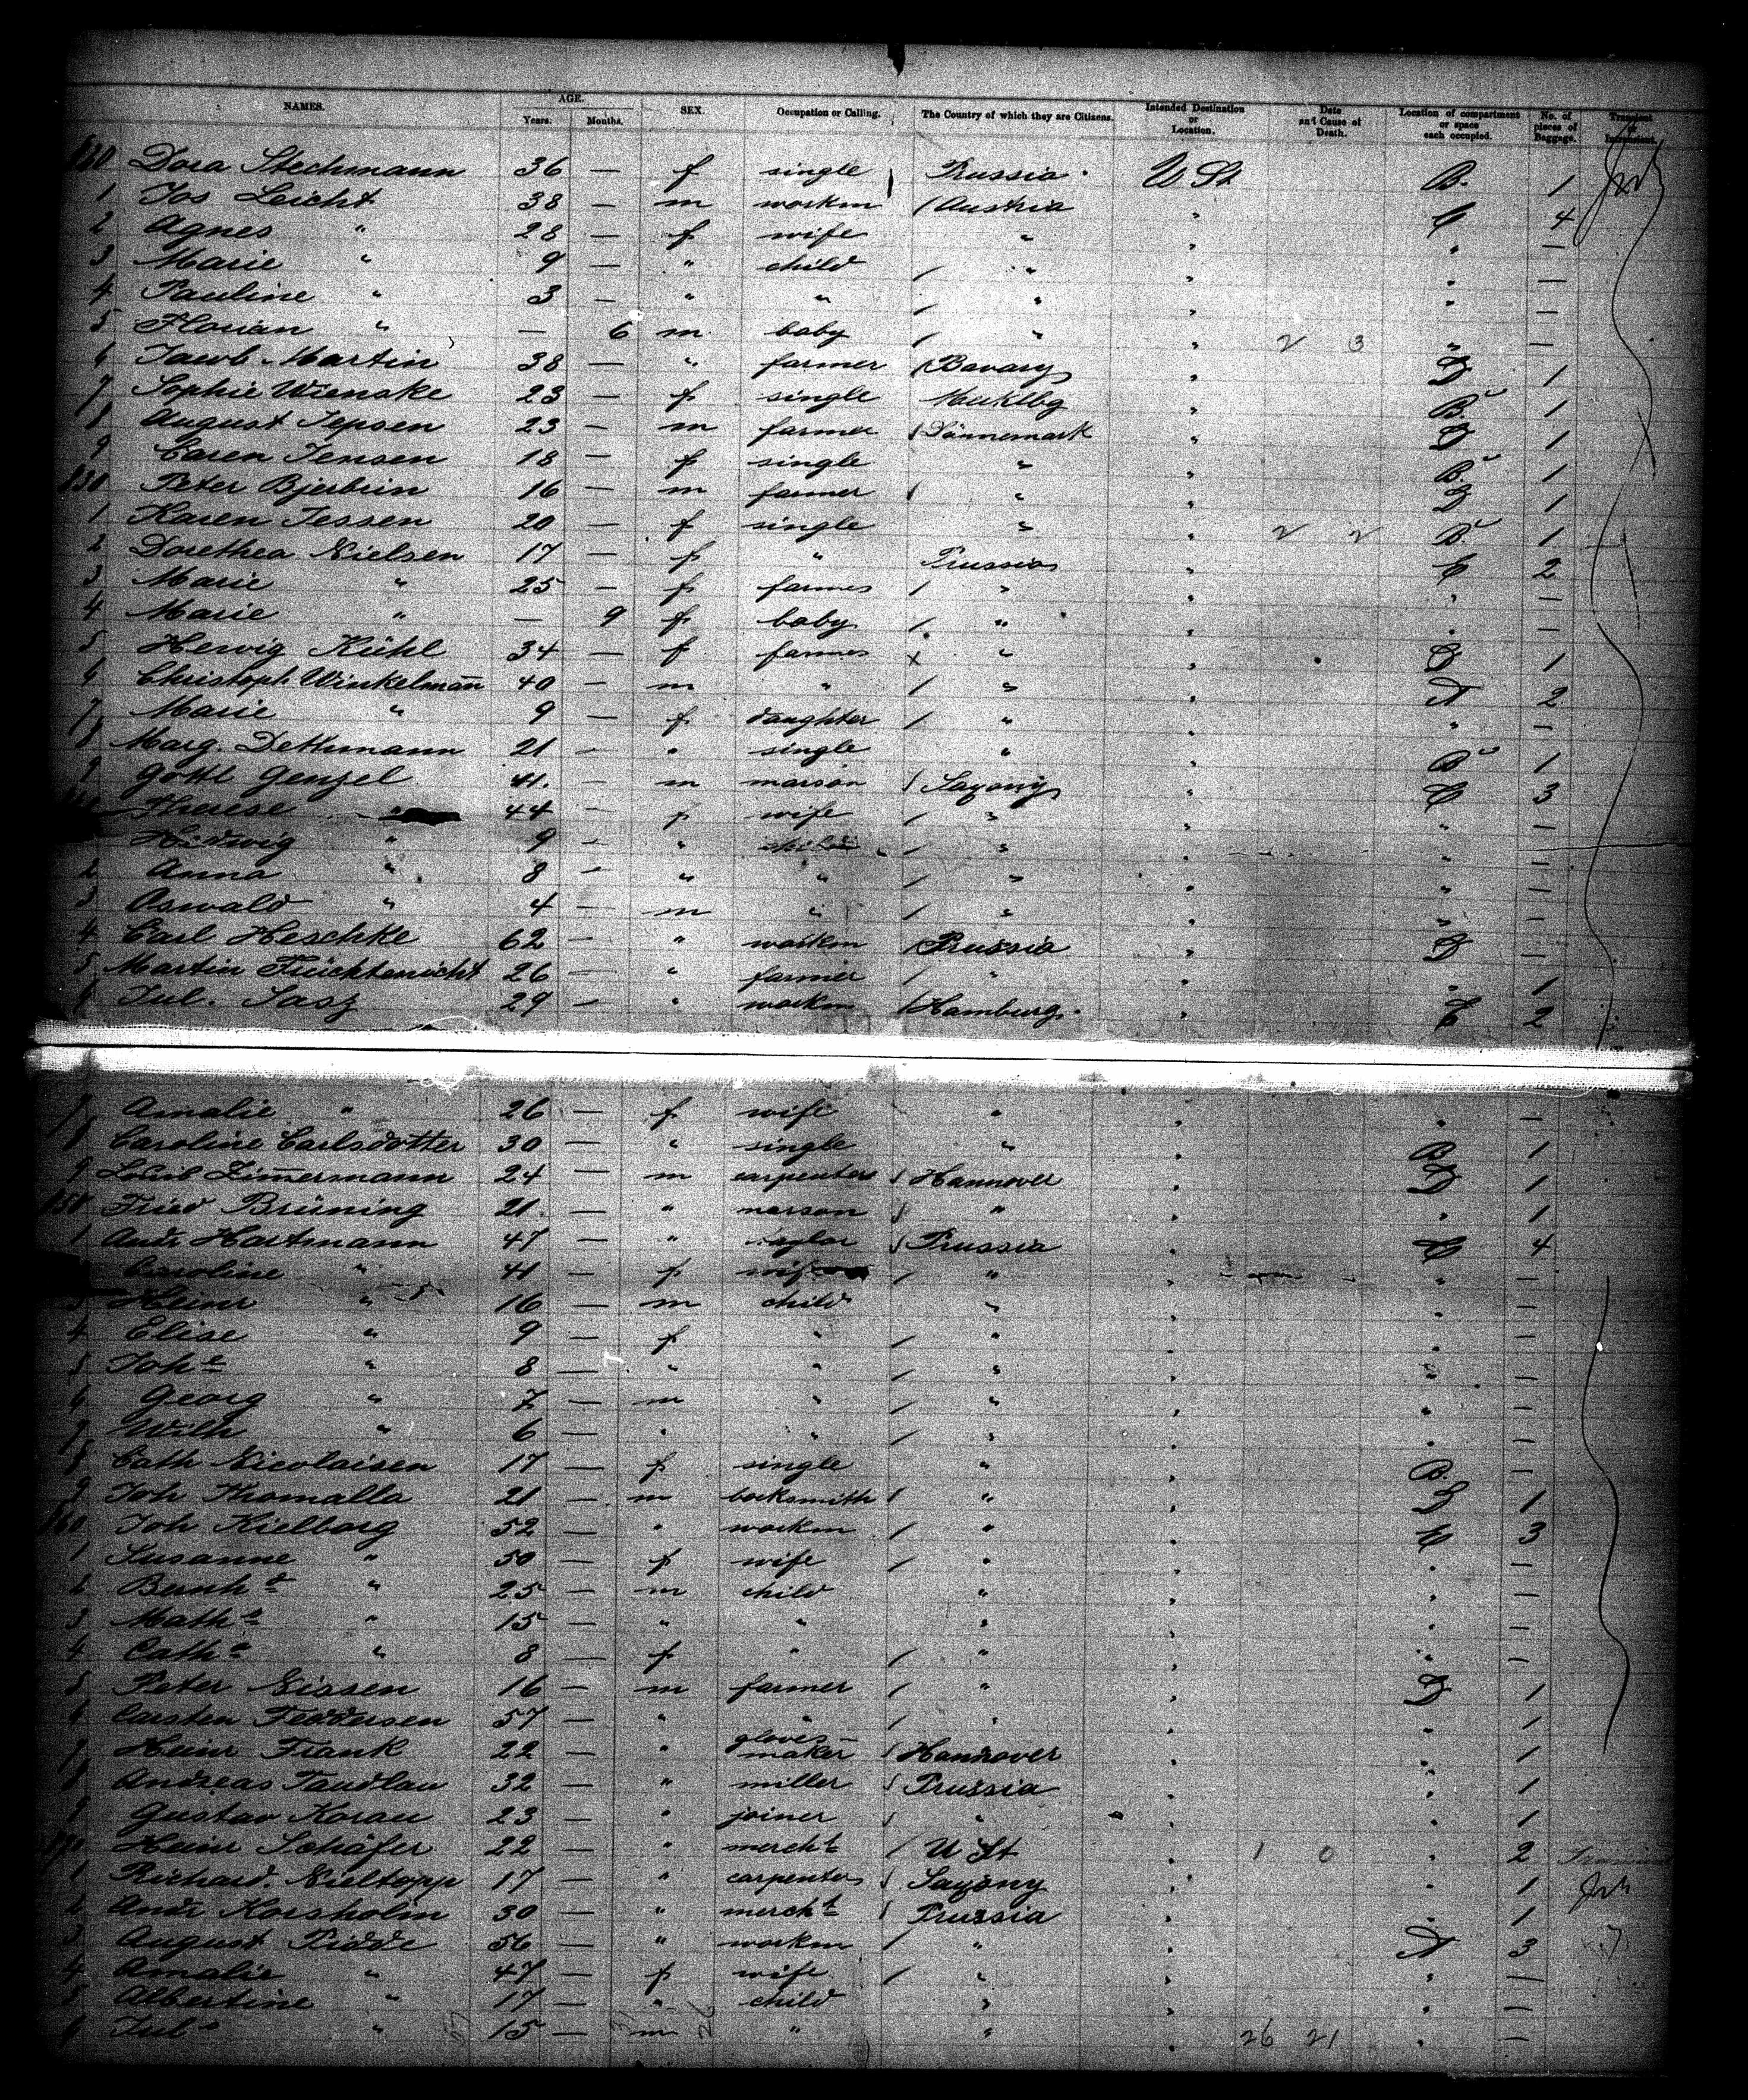 NAMES. AGE. Years. Months. SEX. Occupation or Calling. The Country of which they are Citizens. Intended Destination or Location. Date and Cause of Death. Location of compartment or space each occupied. No. of pieces of Baggage. Transient or
Dora Stechmann 36 — f single Prussia. U St B. 1
1 Jos Leicht 38 — m workm / Austria " C 4
2 Agnes " 28 — f wife " " " —
3 Marie " 9 — " child / " " " —
4 Pauline " 3 — " " / " " " —
5 Florian " — 6 m baby / " " 2 3 " —
6 Jacob Martin 38 — " farmer / Bavary " D 1
7 Sophie Wienske 23 — f single Muklbg " B. 1
8 August Jepsen 23 — m farmer / Dännemark " D 1
9 Caren Jensen 18 — f single " " B. 1
830 Peter Bjerbrin 16 — m farmer / " " D 1
1 Karen Jessen 20 — f single " " 2 2 B. 1
2 Dorethea Nielsen 17 — f " Prussia " C 2
3 Marie " 25 — f farmes / " " " —
4 Marie " — 9 f baby / " " " —
5 Hervig Kühl 34 — f farmes x " " D 1
6 Christoph Winkelman̄ 40 — m " / " " A 2
7 Marie " 9 — f daughter / " " " —
8 Marg. Dethmann 21 — " single " " B 1
9 Gottl Genzel 41. — m marson / Saxony " C 3
Therese " 44 — f wife / " " " —
Hedwig " 9 — " child / " " " —
2 Anna " 8 — " " / " " " —
3 Oswald " 4 — m " / " " " —
4 Carl Heschke 62 — " workm / Prussia " D —
5 Martin Früchtenicht 26 — " farmer / " " " 1
6 Jul. Sasz 29 — " workm / Hamburg. " C 2
7 Amalie " 26 — f wife " " —
8 Caroline Carlsdotter 30 — " single " " B 1
9 Louis Zim̄ermann 24 — m carpenters / Hannover " D 1
850 Fried Brüning 21. — " marson / " " " 1
1 Andr Hartmann 47 — " taylor / Prussia " C 4
Caroline " 41 — f wife / " " " —
3 Heinr " 16 — m child " " " —
4 Elise " 9 — f " / " " " —
5 Johe " 8 — " " / " " " —
6 Georg " 7 — m " / " " " —
7 Wilh " 6 — " " / " " " —
8 Cath Nicolaisen 17 — f single " " B. —
9 Joh Thomalla 21 — m locksmith / " " D 1
860 Joh Kielborg 52 — " workm / " " C 3
1 Susanne " 50 — f wife / " " " —
2 Bernhd " 25 — m child " " " —
3 Maths " 15 — " " " " " —
4 Cathe " 8 — f " / " " " —
5 Peter Nissen 16 — m farmer / " " D 1
6 Carsten Feddersen 57 — " " / " " " 1
7 Heinr Frank 22 — " gloves-maker / Hannover " " 1
8 Andreas Taudlau 32 — " miller / Prussia " " 1
9 Gustav Korau 23 — " joiner / " " " 1
870 Heinr Schäfer 22 — " mercht / U St " 1 0 " 2
1 Richard Nieltopp 17 — " carpenters / Saxony " " 1
2 Andr Korsholm 30 — " mercht / Prussia " " 1
3 August Tidde 56 — " workm / " " A 3
4 Amalie " 47 — f wife / " " " —
5 Albertine " 17 — " child " " " —
6 Juls " 15 — m " " 26 21 " —